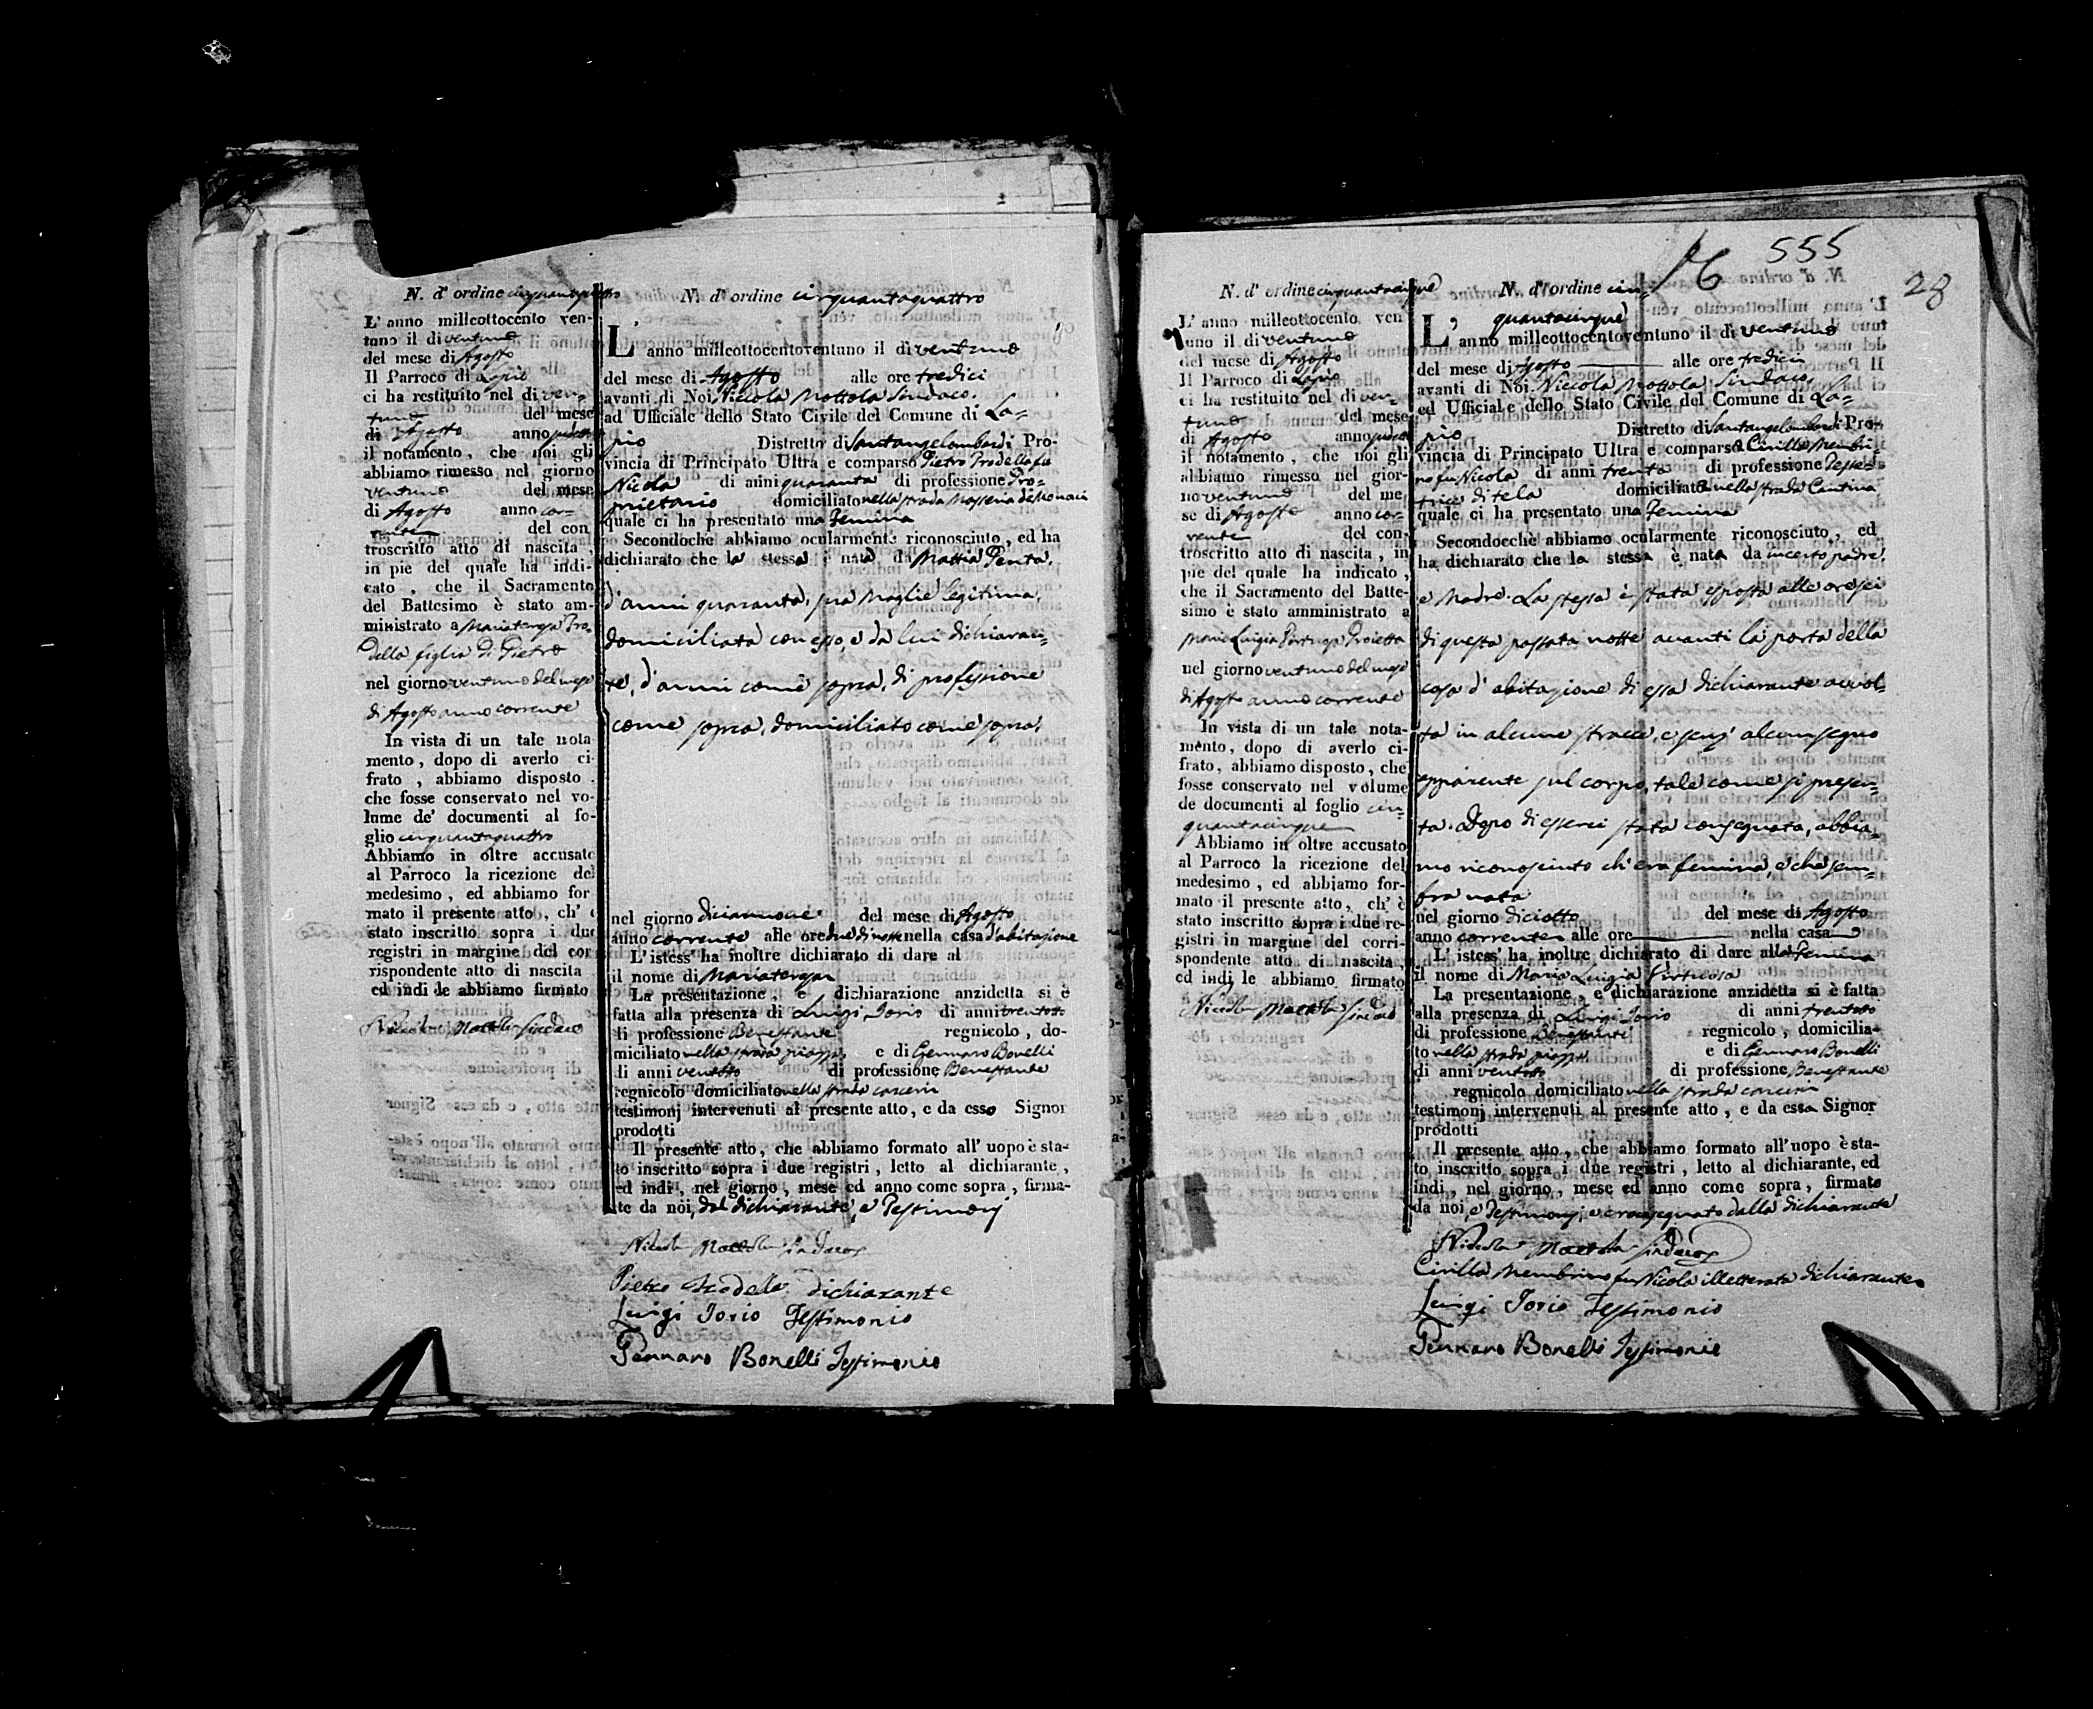 N. d' ordine cinquantaquattro
L' anno milleottocento ven-
tuno il di ventuno
del mese di Agosto
Il Parroco di Lapio
ci ha restituito nel di ven-
tuno del mese
di Agosto anno
il notamento, che noi gli
abbiamo rimesso nel giorno
ventuno del mese
di Agosto anno cor-
rente del con
troscritto atto di nascita,
in pie del quale ha indi-
cato, che il Sacramento
del Battesimo è stato am-
ministrato a Mariateresa Pro-
della figlia di Pietro
nel giorno ventuno del mese
di Agosto anno corrente
In vista di un tale nota
mento, dopo di averlo ci-
frato, abbiamo disposto
che fosse conservato nel vo-
lume de' documenti al fo-
glio cinquantaquattro
Abbiamo in oltre accusato
al Parroco la ricezione del
medesimo, ed abbiamo for
mato il presente atto, ch' è
stato inscritto sopra i due
registri in margine del cor
rispondente atto di nascita
ed indi le abbiamo firmato
Nicola Mottola Sindaco
N. d' ordine cinquantaquattro
L' anno milleottocentoventuno il di ventuno
del mese di Agosto alle ore tredici
avanti di Noi Niccola Mottola Sindaco.
ad Ufficiale dello Stato Civile del Comune di La-
pio Distretto di Santangelombardi Pro-
vincia di Principato Ultra e comparso Pietro Prodella fu
Nicola di anni quaranta di professione Pro-
prietario domiciliato nella strada
quale ci ha presentato una Femina
Secondochè abbiamo ocularmente riconosciuto, ed ha
dichiarato che la stessa è nata da Mattia Penta,
d'anni quaranta, sua Moglie legitima,
domiciliata con esso, e da lui dichiaran-
te, d'anni come sopra, di professione
come sopra, domiciliato come sopra,
nel giorno diciannove del mese di Agosto
anno corrente alle ore due di notte nella casa d'abitazione
L' istess' ha inoltre dichiarato di dare al
il nome di Mariateresa
La presentazione, e dichiarazione anzidetta si è
fatta alla presenza di Luigi Iorio di anni trentotto
di professione Benestante regnicolo, do-
miciliato nella strada piazza, e di Gennaro Bonelli
di anni ventotto di professione Benestante
regnicolo domiciliato nella strada carcerie
testimonj intervenuti al presente atto, e da esso Signor
prodotti
Il presente atto, che abbiamo formato all' uopo è sta-
to inscritto sopra i due registri, letto al dichiarante,
ed indi, nel giorno, mese ed anno come sopra, firma-
te da noi, dal dichiarante, e Testimonj
Nicola Mottola Sindaco
Pietro Prodella dichiarante
Luigi Iorio Testimonio
Gennaro Bonelli Testimonio
16 555
28
N. d' ordine cinquantacinque
L' anno milleottocento ven
tuno il di ventuno
del mese di Agosto
Il Parroco di Lapio
ci ha restituito nel di ven-
tuno del mese
di Agosto anno
il notamento, che noi gli
abbiamo rimesso nel gior-
no ventuno del me
se di Agosto anno cor-
rente del con-
troscritto atto di nascita, in
pie del quale ha indicato,
che il Sacramento del Batte-
simo è stato amministrato a
Maria Luigia Proietta
nel giorno ventuno del mese
di Agosto anno corrente
In vista di un tale nota-
mento, dopo di averlo ci-
frato, abbiamo disposto, che
fosse conservato nel volume
de documenti al foglio cin-
quantacinque
Abbiamo in oltre accusato
al Parroco la ricezione del
medesimo, ed abbiamo for-
mato il presente atto, ch' è
stato inscritto sopra i due re-
gistri in margine del corri-
spondente atto di nascita
ed indi le abbiamo firmato
Nicola Mottola Sindaco
N. d' ordine cin-
quantacinque
L' anno milleottocentoventuno il di ventuno
del mese di Agosto alle ore tredici
avanti di Noi Niccola Mottola Sindaco,
ed Ufficiale dello Stato Civile del Comune di La-
pio Distretto di Santangelombardi Pro-
vincia di Principato Ultra e comparsa Cirilla Membri-
no fu Nicola di anni trenta di professione Tessi-
trice di tela domiciliata nella strada Cantina
quale ci ha presentato una Femina
Secondocchè abbiamo ocularmente riconosciuto, ed
ha dichiarato che la stessa è nata da incerto padre,
e Madre. La stessa è stata esposta alle ore sei
di questa passata notte avanti la porta della
casa d' abitazione di essa dichiarante avvol-
ta in alcune stracce, e senz' alcun segno
apparente sul corpo, tale come si presen-
ta. Dopo di esserci stata consegnata, abbia-
mo riconosciuto ch' era femina, e che sem-
bra nata
nel giorno diciotto del mese di Agosto
anno corrente alle ore nella casa
L' istess' ha inoltre dichiarato di dare alla Femina
il nome di Maria Luigia
La presentazione, e dichiarazione anzidetta si è fatta
alla presenza di Luigi Iorio di anni trentotto
di professione Benestante regnicolo, domicilia-
to nella strada piazza e di Gennaro Bonelli
di anni ventotto di professione Benestante
regnicolo domiciliato nella strada carcerie
testimonj intervenuti al presente atto, e da essa Signor
prodotti
Il presente atto, che abbiamo formato all' uopo è sta-
to inscritto sopra i due registri, letto al dichiarante, ed
indi, nel giorno, mese ed anno come sopra, firmato
da noi, e Testimonj, e crocesegnato dalla dichiarante
Nicola Mottola Sindaco
Cirilla Membrino fu Nicola illetterata dichiarante
Luigi Iorio Testimonio
Gennaro Bonelli Testimonio